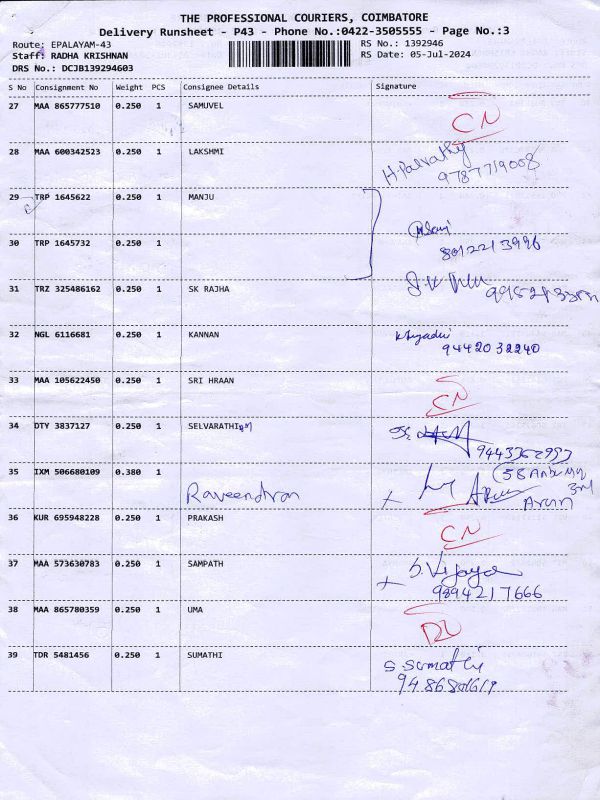 THE PROFESSIONAL COURIERS, COIMBATORE
Delivery Runsheet - P43 - Phone No.:0422-3505555 - Page No.:3
Route: EPALAYAM-43 RS No.: 1392946
Staff: RADHA KRISHNAN RS Date: 05-Jul-2024
DRS No.: DCJB139294603
S No Consignment No Weight PCS Consignee Details Signature
27 MAA 865777510 0.250 1 SAMUVEL CN
28 MAA 600342523 0.250 1 LAKSHMI H Parvathy
9787719008
29 TRP 1645622 0.250 1 MANJU
30 TRP 1645732 0.250 1 8012213996
31 TRZ 325486162 0.250 1 SK RAJHA
32 NGL 6116681 0.250 1 KANNAN
9442032240
33 MAA 105622450 0.250 1 SRI HRAAN CN
34 DTY 3837127 0.250 1 SELVARATHI
35 IXM 506680109 0.380 1
Raveendran Arun
36 KUR 695948228 0.250 1 PRAKASH CN
37 MAA 573630783 0.250 1 SAMPATH S. Vijaya
9894217666
38 MAA 865780359 0.250 1 UMA DL
39 TDR 5481456 0.250 1 SUMATHI S. Sumathi
9486801619